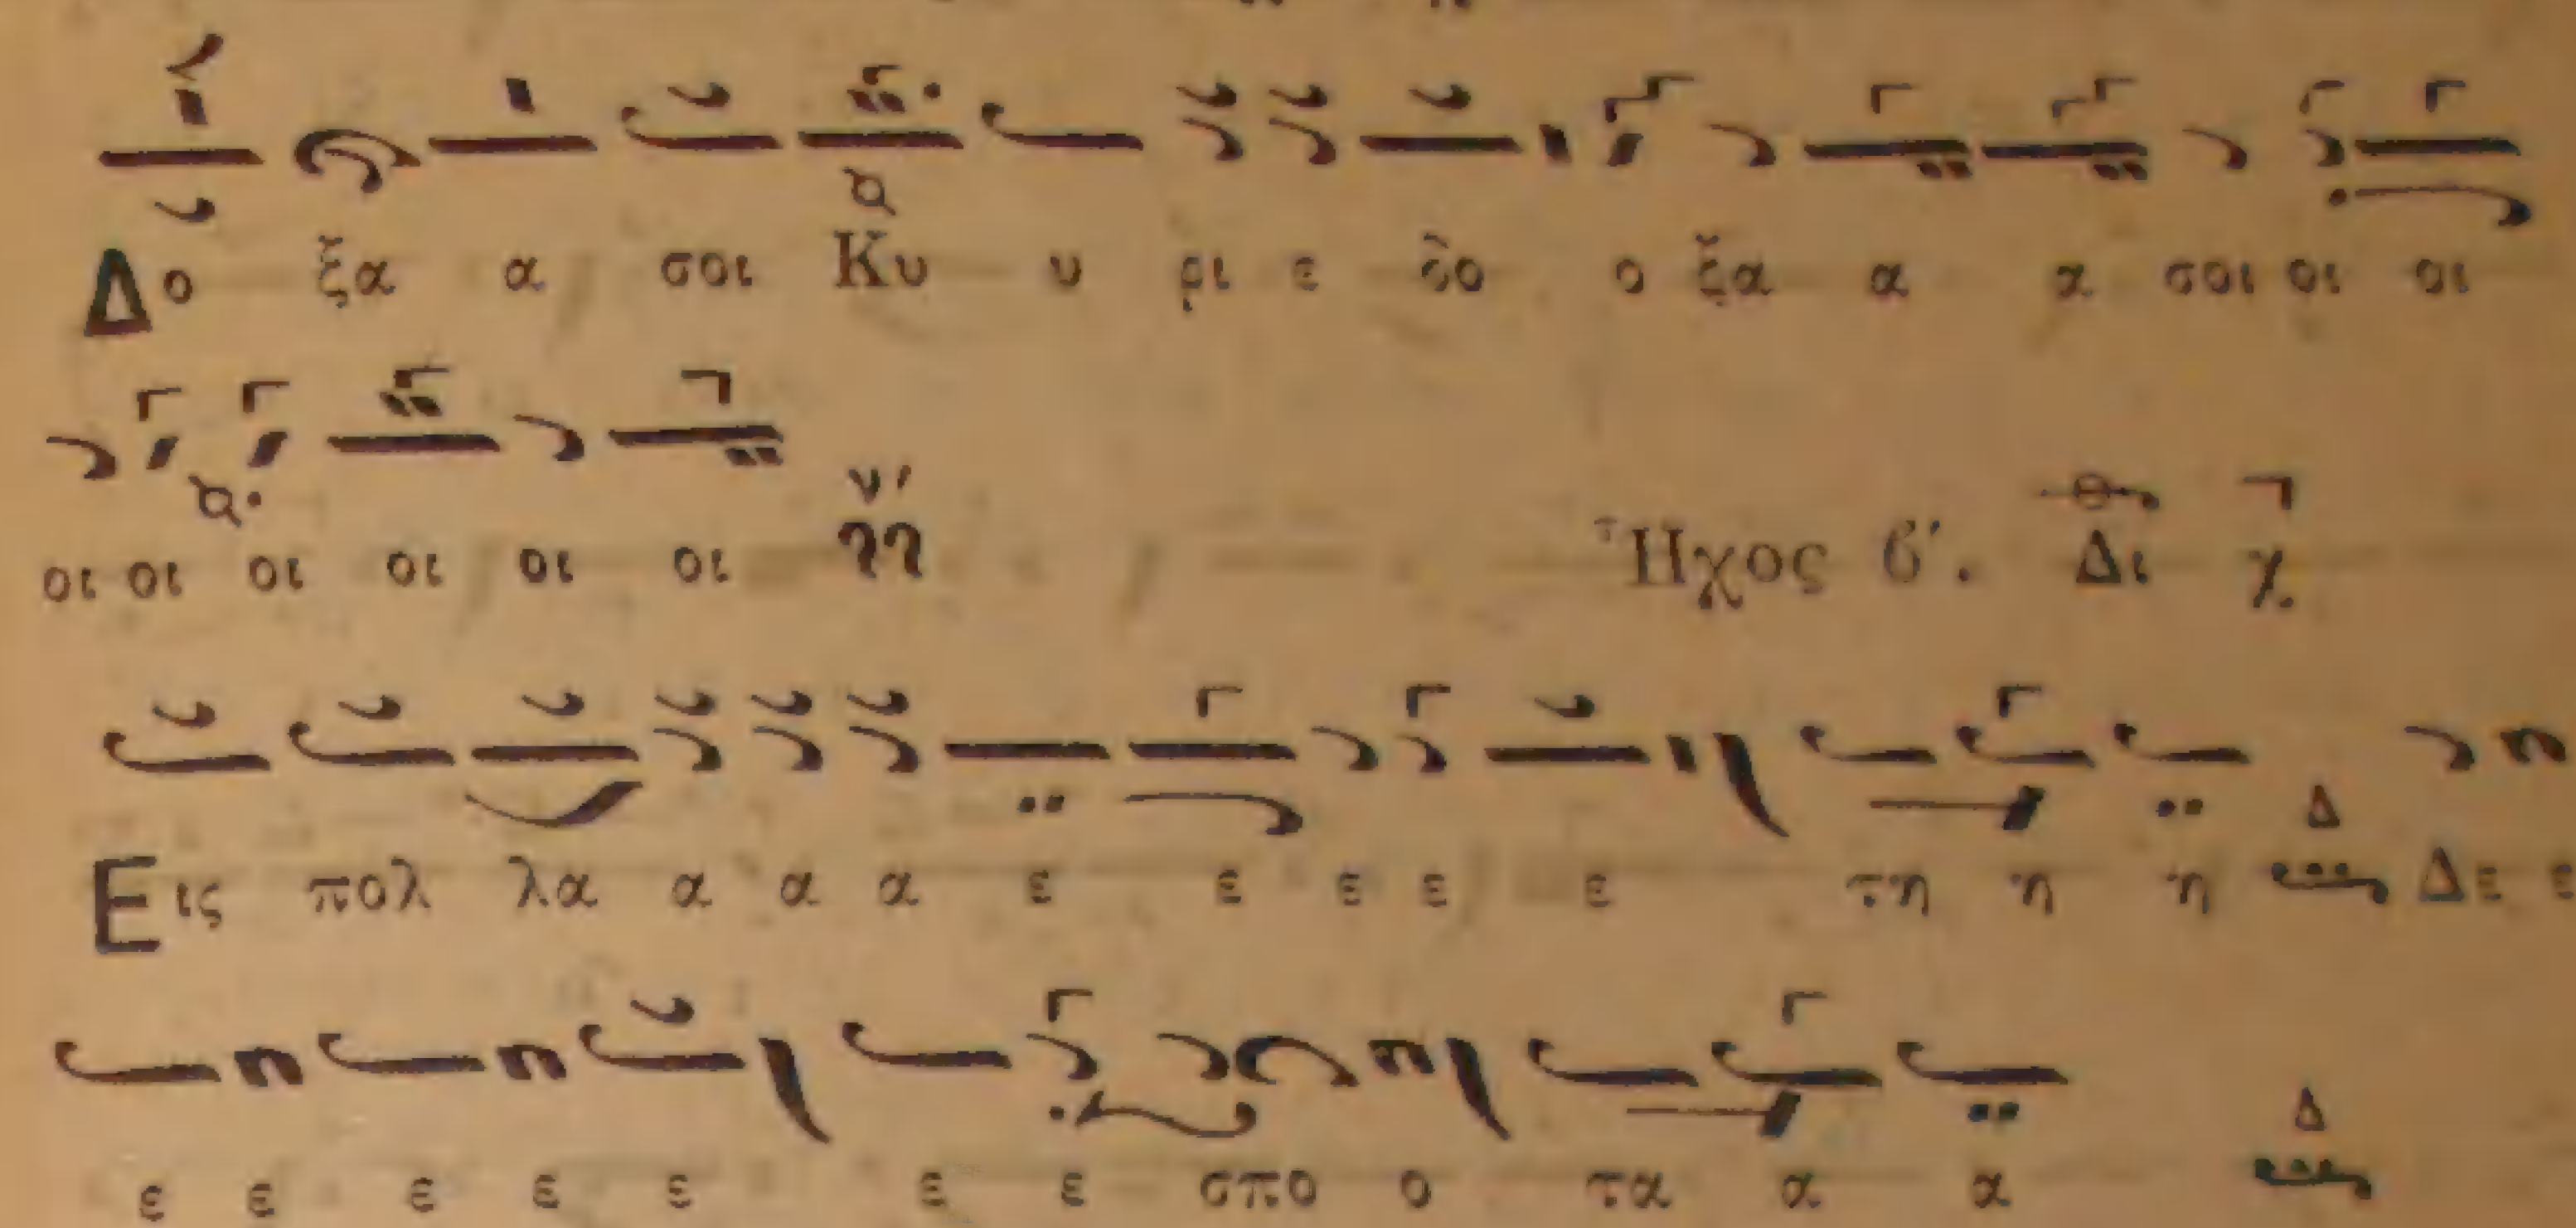 Δο ξα α σοι Κυ υ ρι ε δο ο ξα α α σοι οι οι
οι οι οι οι οι οι Ἦχος β΄. Δι χ
Εις πολ λα α α α ε ε ε ε ε τη η η Δ Δε ε
ε ε ε ε ε ε ε σπο ο τα α α Δ